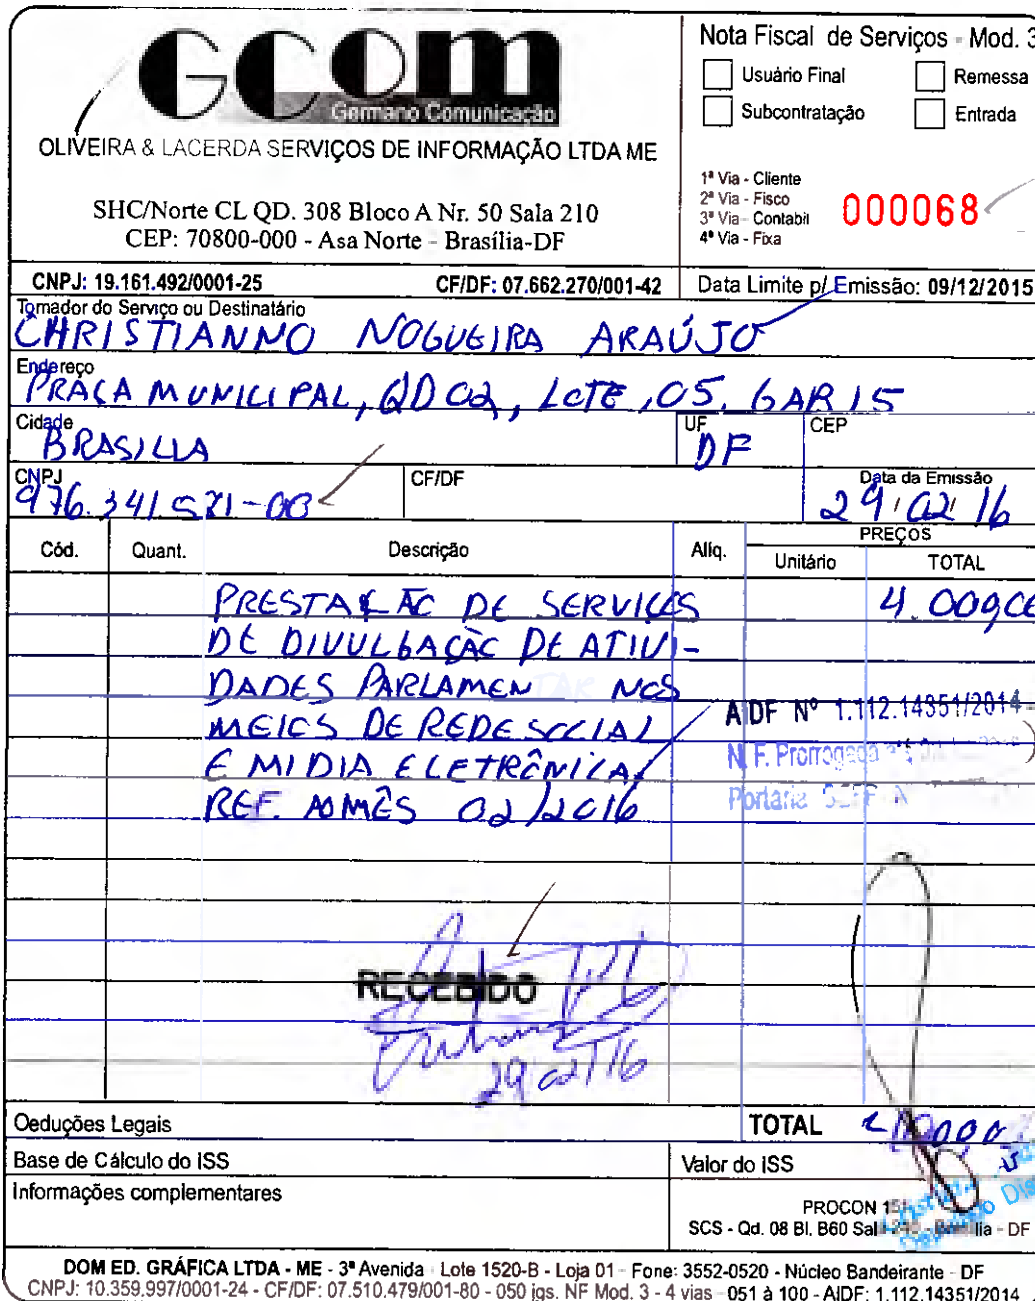 GCom
Germano Comunicação
OLIVEIRA & LACERDA SERVIÇOS DE INFORMAÇÃO LTDA ME
SHC/Norte CL QD. 308 Bloco A Nr. 50 Sala 210
CEP: 70800-000 - Asa Norte - Brasília-DF
Nota Fiscal de Serviços - Mod. 3
Usuário Final Remessa
Subcontratação Entrada
1ª Via - Cliente
2ª Via - Fisco
3ª Via - Contabil
4ª Via - Fixa
000068
CNPJ: 19.161.492/0001-25 CF/DF: 07.662.270/001-42 Data Limite p/ Emissão: 09/12/2015
Tomador do Serviço ou Destinatário
CHRISTIANNO NOGUEIRA ARAÚJO
Endereço
PRAÇA MUNICIPAL, QD 02, LOTE, 05, GAB 15
Cidade UF CEP
BRASILIA DF
CNPJ CF/DF Data da Emissão
976.341.521-00 29 02 16
Cód. Quant. Descrição Alíq. PREÇOS
Unitário TOTAL
PRESTAÇÃO DE SERVIÇOS 4.000,00
DE DIVULGAÇÃO DE ATIVI-
DADES PARLAMENTAR NOS
MEIOS DE REDE SOCIAL
E MIDIA ELETRÔNICA
REF. AO MÊS 02/2016
AIDF Nº 1.112.14351/2014
N.F. Prorrogada
Portaria
RECEBIDO
29/02/16
Deduções Legais TOTAL
Base de Cálculo do ISS Valor do ISS
Informações complementares
PROCON 151
SCS - Qd. 08 Bl. B60 Sala - DF
DOM ED. GRÁFICA LTDA - ME - 3ª Avenida Lote 1520-B - Loja 01 - Fone: 3552-0520 - Núcleo Bandeirante - DF
CNPJ: 10.359.997/0001-24 - CF/DF: 07.510.479/001-80 - 050 jgs. NF Mod. 3 - 4 vias - 051 à 100 - AIDF: 1.112.14351/2014